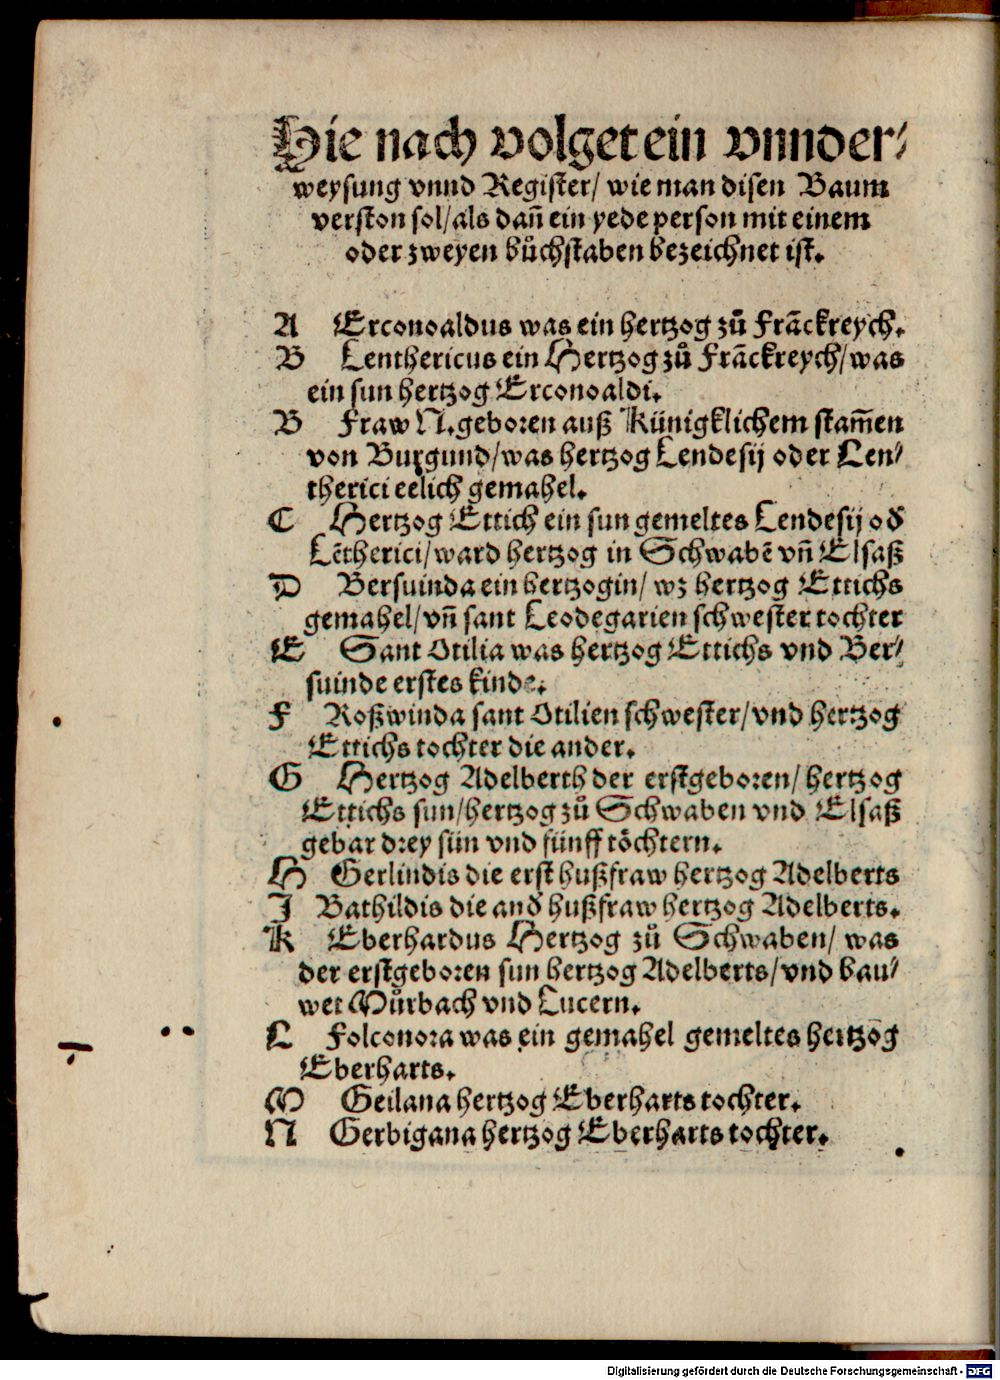 Hie nach volget ein vnnder/
weysung vnnd Register/ wie man disen Baum
verston sol/als dañ ein yede person mit einem
oder zweyen bůchstaben bezeichnet ist.
A Erconoaldus was ein hertzog zů Frãckreych.
B Lenthericus ein Hertzog zů Frãckreych/was
ein sun hertzog Erconoaldi.
B Fraw N.geboren auß Künigklichem stam̃en
von Burgund/was hertzog Lendesij oder Len/
therici eelich gemahel.
C Hertzog Ettich ein sun gemeltes Lendesij oď
Lẽtherici/ward hertzog in Schwabẽ vñ Elsaß
D Bersuinda ein hertzogin/ wz hertzog Ettichs
gemahel/vñ sant Leodegarien schwester tochter
E Sant Otilia was hertzog Ettichs vnd Ber/
suinde erstes kinde.
F Roßwinda sant Otilien schwester/vnd hertzog
Ettichs tochter die ander.
G Hertzog Adelberth der erstgeboren/ hertzog
Ettichs sun/hertzog zů Schwaben vnd Elsaß
gebar drey sün vnd fünff töchtern.
H Gerlindis die erst hußfraw hertzog Adelberts
J Bathildis die anď hußfraw hertzog Adelberts.
K Eberhardus Hertzog zů Schwaben/ was
der erstgeboren sun hertzog Adelberts/vnd bau/
wet Můrbach vnd Lucern.
L Folconora was ein gemahel gemeltes hertzog
Eberharts.
M Geilana hertzog Eberharts tochter.
N Gerbigana hertzog Eberharts tochter.
Digitalisierung gefördert durch die Deutsche Forschungsgemeinschaft - DFG